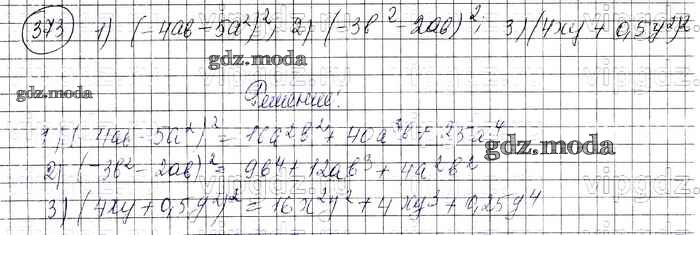 373 1) (-4ab-5a²)²; 2) (-3b²-2ab)²; 3) (4xy+0,5y²)²
gdz.moda
gdz.moda
Решение:
1) (-4ab-5a²)² = 16a²b²+40a³b+25a⁴
gdz.moda
2) (-3b²-2ab)² = 9b⁴+12ab³+4a²b²
3) (4xy+0,5y²)² = 16x²y²+4xy³+0,25y⁴